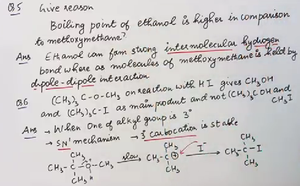 Q5 Give reason
Boiling point of ethanol is higher in comparison
to methoxymethane?
Ans Ethanol can form strong intermolecular hydrogen
bond where as molecules of methoxymethane is held by
dipole-dipole interaction
Q6 (CH3)3 C-O-CH3 on reaction with HI gives CH3OH
and (CH3)3C-I as main product and not (CH3)3COH and
CH3I
Ans → When one of alkyl group is 3°
→ SN1 mechanism → 3° carbocation is stable
CH3 CH3 CH3
CH3-C-O-CH3 slow CH3-C⊕ I⁻ CH3-C-I
CH3 H CH3 CH3